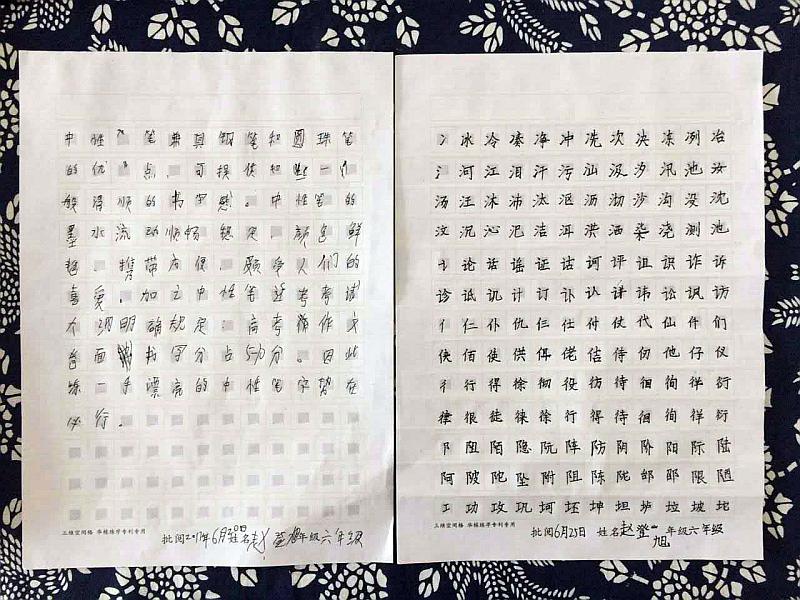 中性 笔兼具钢笔和圆珠笔
的优 点
般滑顺的书写感。中性笔的
墨水流动顺畅稳定、颜色鲜
艳、携带方便、颇受人们的
喜爱。加之中性笔近考考试
明确规定：高考作文
卷面 书字分占50分。因此
练一手漂亮的中性笔字势在
必行。
三维空间格 华栋练字专利专用
批阅2017年6月20日 姓名赵 年级六年级
冫冰冷凑净冲冼次决冻冽冶
氵河江泪汗污汕汲汐汛池汝
汤汪沐沛汰沤沥沏沙沟没汰
汶沉沁汜洁洱洪洒染浇测池
讠论话谣证诂诃评诅识诈诉
诊诋讥计订讣认详讳讼讽访
亻仁仆仇仨仕付仗代仙件们
侠佰使供佴佬佶侍份他仔仪
彳行得徐彻役彷待徊徇徉衍
律很徒徕徐行得待徊徇徉衍
阝阻陌隐阮阵防阴阶阳际陆
阿陂陀坠附阻陈陇邮那限随
工功攻巩坷坯坤坦垆垃坡坨
三维空间格 华栋练字专利专用
批阅6月25日 姓名赵登旭 年级六年级